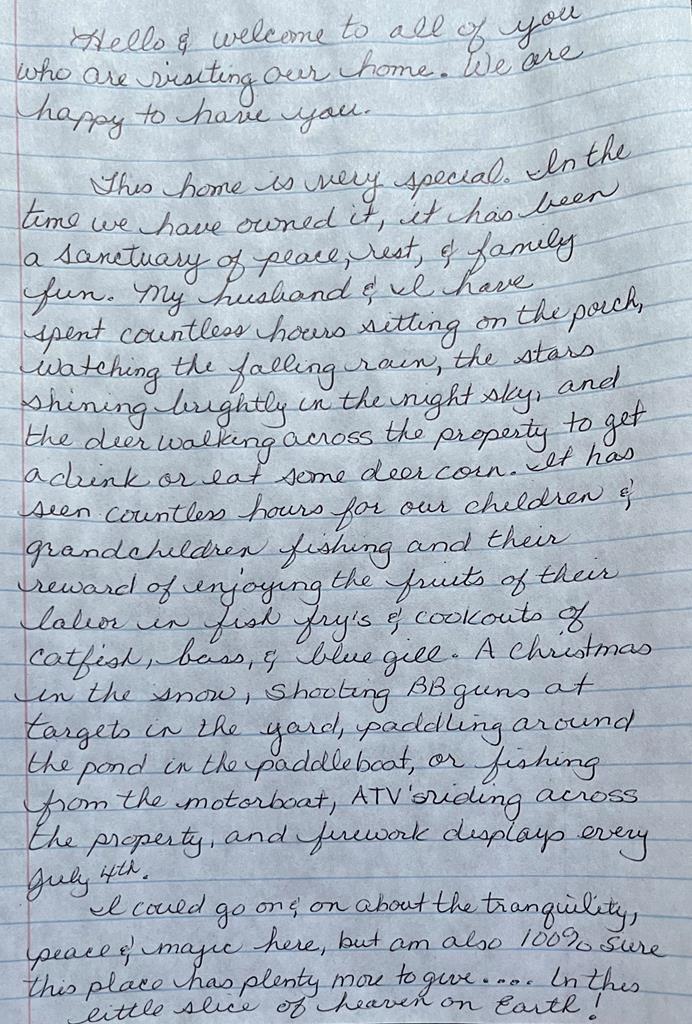 Hello & welcome to all of you
who are visiting our home. We are
happy to have you.
This home is very special. In the
time we have owned it, it has been
a sanctuary of peace, rest, & family
fun. My husband & I have
spent countless hours sitting on the porch,
watching the falling rain, the stars
shining brightly in the night sky, and
the deer walking across the property to get
a drink or eat some deer corn. It has
seen countless hours for our children &
grandchildren fishing and their
reward of enjoying the fruits of their
labor in fish fry's & cookouts of
catfish, bass, & blue gill. A Christmas
in the snow, shooting BB guns at
targets in the yard, paddling around
the pond in the paddleboat, or fishing
from the motorboat, ATV's riding across
the property, and firework displays every
July 4th.
I could go on & on about the tranquility,
peace & magic here, but am also 100% sure
this place has plenty more to give.... In this
little slice of heaven on Earth!